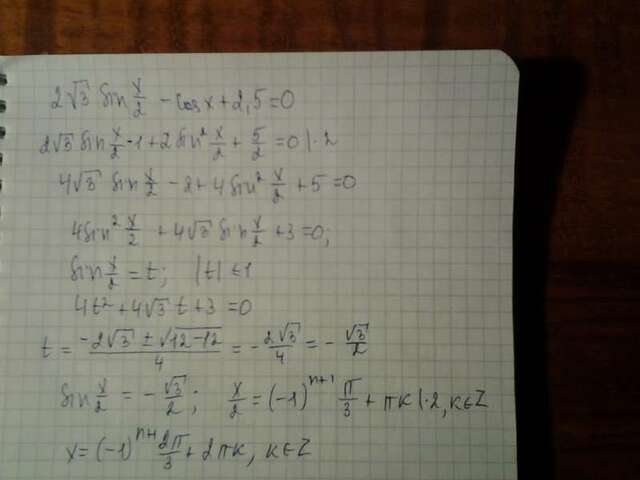 2√3 sin x/2 - cos x + 2,5 = 0
2√3 sin x/2 - 1 + 2 sin² x/2 + 5/2 = 0 |· 2
4√3 sin x/2 - 2 + 4 sin² x/2 + 5 = 0
4 sin² x/2 + 4√3 sin x/2 + 3 = 0;
sin x/2 = t; |t| ≤ 1
4t² + 4√3 t + 3 = 0
t = (-2√3 ± √(12-12))/4 = - 2√3/4 = - √3/2
sin x/2 = - √3/2; x/2 = (-1)ⁿ⁺¹ π/3 + πk |· 2, k∈Z
x = (-1)ⁿ⁺¹ 2π/3 + 2πk, k∈Z